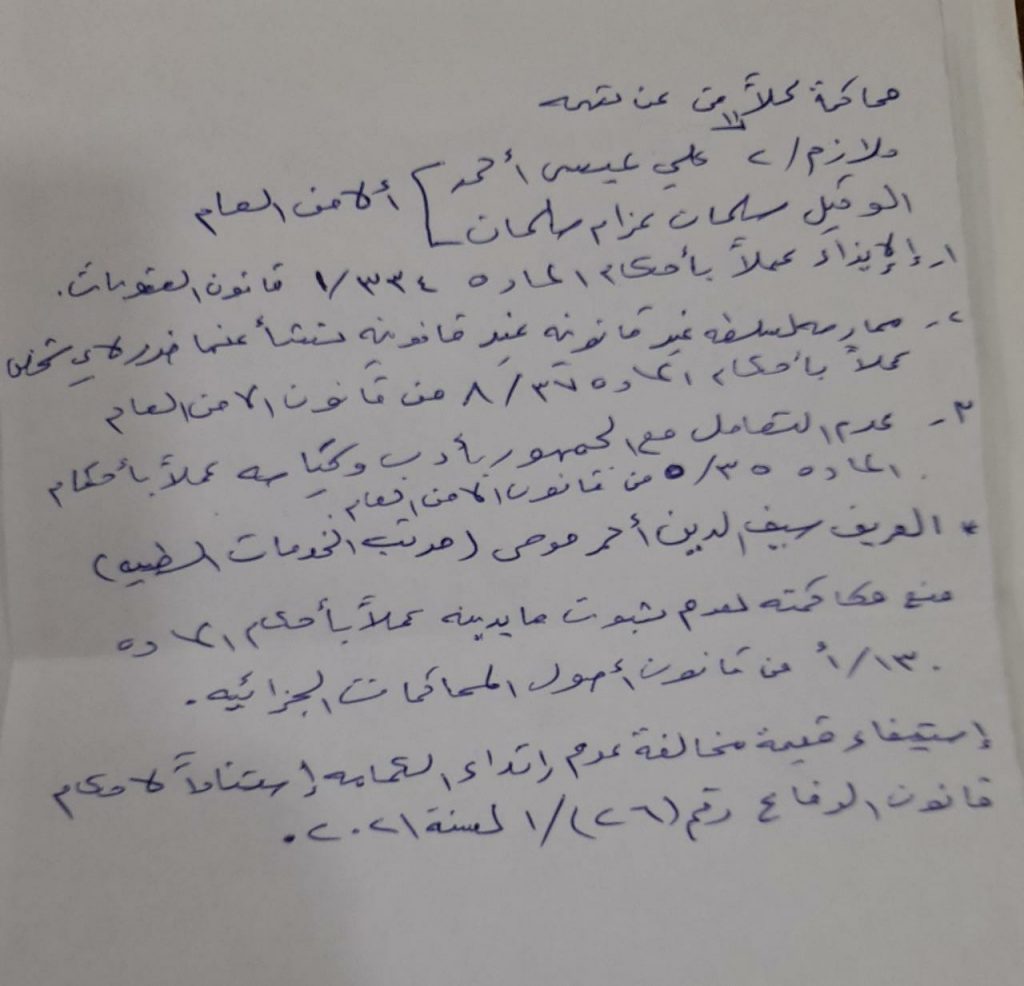 محاكمة كلاً من عن تهمه
ملازم/٢ علي عيسى أحمد
الوكيل سلمان عزام سلمان ] ألامن العام
١- إلإيذاء عملاً بأحكام الماده ٣٣٤/١ قانون العقوبات.
٢- ممارسه سلطه غير قانونيه غير قانونيه تنشأ عنها ضرر لاي شخص
عملاً بأحكام الماده ٣٧/٨ من قانون الامن العام
٣- عدم التعامل مع الجمهور بأدب وكياسه عملاً بأحكام
الماده ٣٥/٥ من قانون الامن العام.
* العريف سيف الدين أحمد موسى (مرتب الخدمات الطبيه)
منع محاكمته لعدم ثبوت ما يدينه عملاً بأحكام الماده
١٣٠/أ من قانون أصول المحاكمات الجزائيه.
إستيفاء قيمة مخالفة عدم إرتداء الكمامه إستناداً لاحكام
قانون الدفاع رقم (٢٦)/١ لسنة ٢٠٢١.